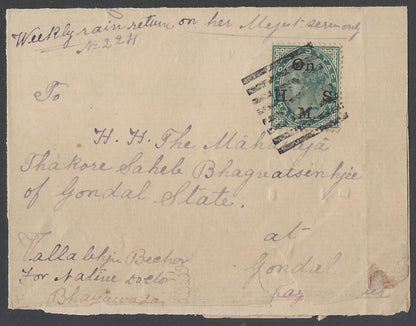 Weekly rain return on her Majest servi only
N. 224
On
H S
M
To
H. H. The Mahārājā
Thakore Saheb Bhagvatsinhjee
of Gondal State.
at
Gondal
Vallabhji Bechor
For Native Doctor
Bhayavadar